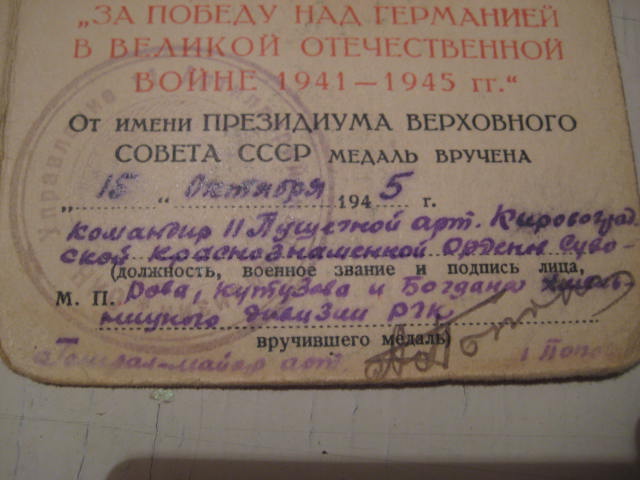 „ЗА ПОБЕДУ НАД ГЕРМАНИЕЙ
В ВЕЛИКОЙ ОТЕЧЕСТВЕННОЙ
ВОЙНЕ 1941—1945 гг.“
От имени ПРЕЗИДИУМА ВЕРХОВНОГО
СОВЕТА СССР медаль вручена
„15“ Октября 1945 г.
Командир 11 Пушечной арт. Кировоград
ской Краснознаменной Ордена Суво-
(должность, военное звание и подпись лица,
М. П. рова, Кутузова и Богдана Хмель-
ницкого дивизии РГК
вручившего медаль)
Генерал-майор арт. Попо
Управление